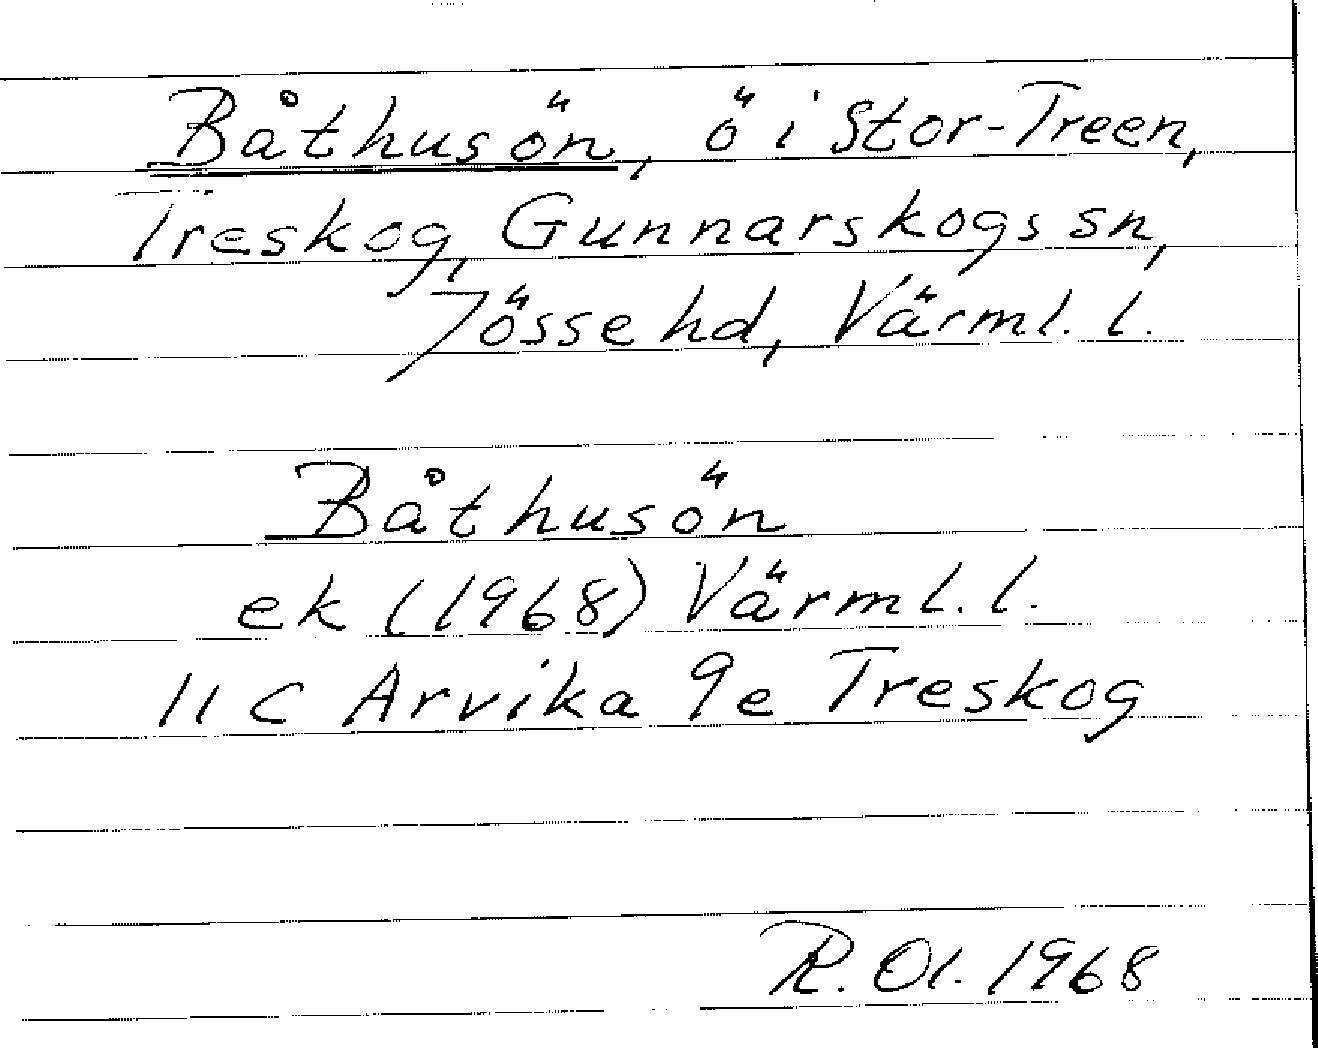 Båthusön, ö i Stor-Treen,
Treskog, Gunnarskogs sn,
Jösse hd, Värml. l.
Båthusön
ek (1968) Värml. l.
11 C Arvika 9e Treskog
R. Ol. 1968